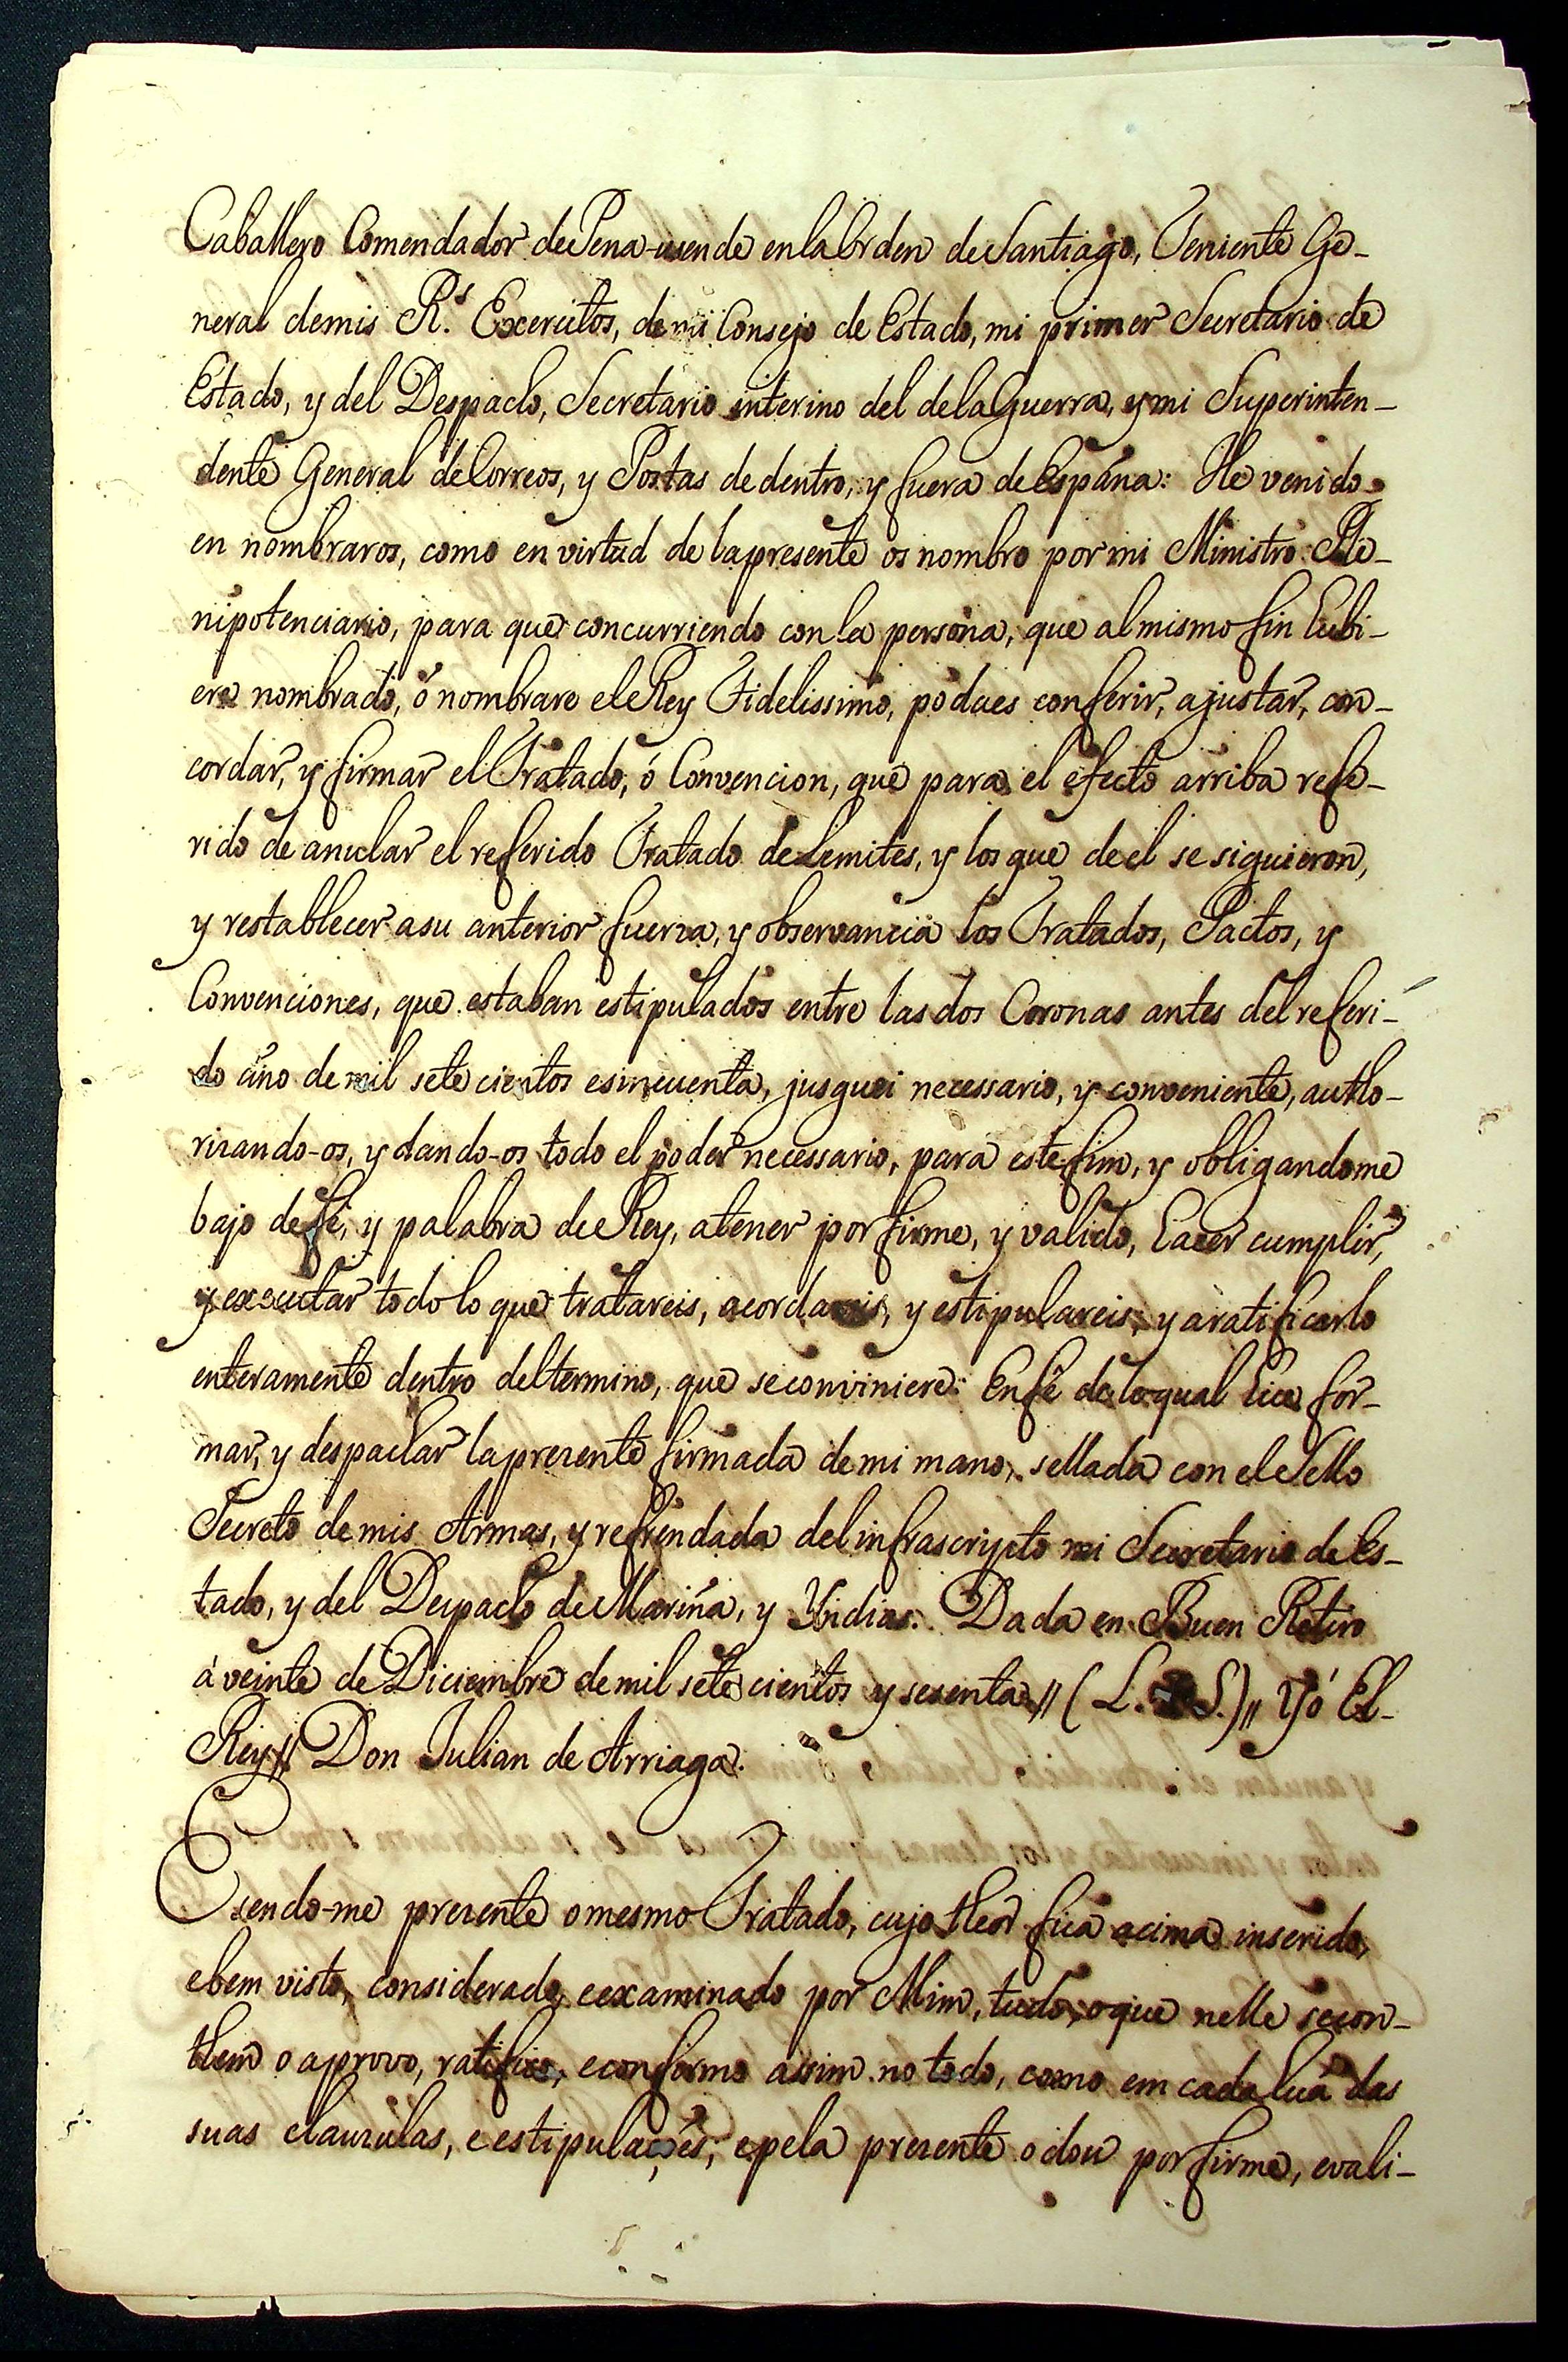 Caballero Comendador de Pena-usende en la Orden de Santiago, Teniente Ge-
neral de mis R.s Exercitos, de mi Consejo de Estado, mi primer Secretario de
Estado, y del Despacho, Secretario interino del de la Guerra, y mi Superinten-
dente General de Correos, y Postas de dentro, y fuera de España: He venido
en nombraros, como en virtud de la presente os nombro por mi Ministro Ple-
nipotenciario, para que concurriendo con la persona, que al mismo fin hubi-
era nombrado, ó nombrare el Rey Fidelissimo, podaes conferir, ajustar, con-
cordar, y firmar el Tratado, ó Convencion, que para el efecto arriba refe-
rido de anular el referido Tratado de Lemites, y los que de el se siguieron,
y restablecer a su anterior fuerza, y observancia los Tratados, Pactos, y
Convenciones, que estaban estipulados entre las dos Coronas antes del referi-
do año de mil sete cientos esincuenta, jusguei necessario, y conveniente, autho-
rizando-os, y dando-os todo el poder necessario, para este fim, y obligandome
bajo de fé, y palabra de Rey, a tener por firme, y valido, hacer cumplir,
y executar todo lo que tratareis, acordareis, y estipulareis, y a ratificarlo
enteramente dentro del termino, que se conviniere: En fé de lo qual hice for-
mar, y despachar la prezente firmada de mi mano, sellada con el Sello
Secreto de mis Armas, y refrendada del infrascripto mi Secretario de Es-
tado, y del Despacho de Marina, y Yndias. Dada en Buen Retiro
á veinte de Diciembre de mil sete cientos y sesenta // ( L. S.) // Yó El-
Rey // Don Julian de Arriaga.
E sendo-me prezente o mesmo Tratado, cujo theor fica acima inserido,
e bem visto, considerado, e examinado por Mim, tudo, o que nelle se con-
them o aprovo, ratifico, e confirmo assim no todo, como em cada huá das
suas clauzulas, e estipulações; e pela prezente o dou por firme, e vali-